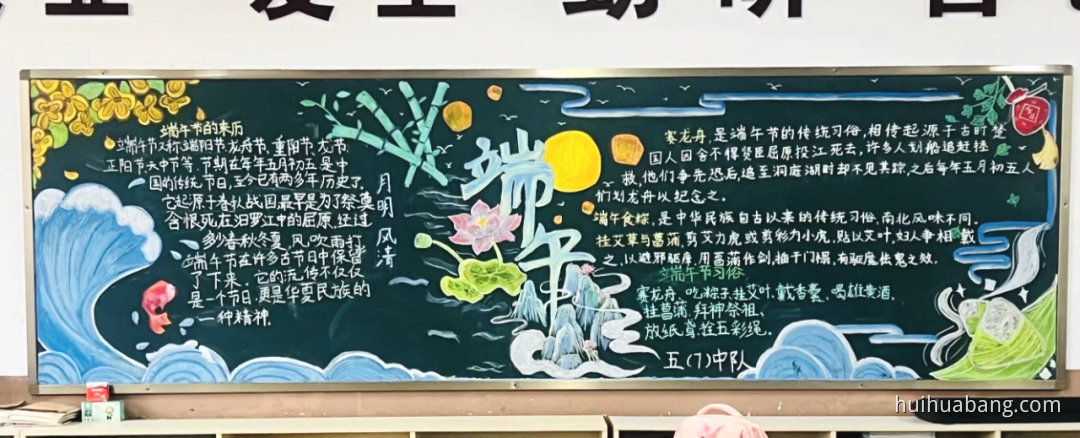 端午节的来历
端午节又称端阳节、龙舟节、重阴节、尤节、
正阳节、天中节等,节期在每年五月初五是中
国的传统节日,至今已有两多年历史了.
它起源于春秋战国最早是为了祭奠
含恨死在汨罗江中的屈原,经过
多少春秋冬夏,风吹雨打
端午节在许多古节日中保留
了下来.它的流传不仅仅
是一个节日,更是华夏民族的
一种精神.
月明风清
端午
赛龙舟,是端午节的传统习俗,相传起源于古时楚
国人因舍不得贤臣屈原投江死去,许多人划船追赶拯
救,他们争先恐后,追至洞庭湖时却不见其踪,之后每年五月初五人
们划龙舟以纪念之.
端午食粽,是中华民族自古以来的传统习俗,南北风味不同.
挂艾草与菖蒲,剪艾为虎或剪彩为小虎,贴以艾叶,妇人争相戴
之,以避邪驱瘴,用菖蒲作剑,插于门楣,有驱魔祛鬼之效.
端午节习俗
赛龙舟、吃粽子、挂艾叶、戴香囊、喝雄黄酒、
挂菖蒲、拜神祭祖、
放纸鸢、拴五彩绳.
五(7)中队
huihuabang.com